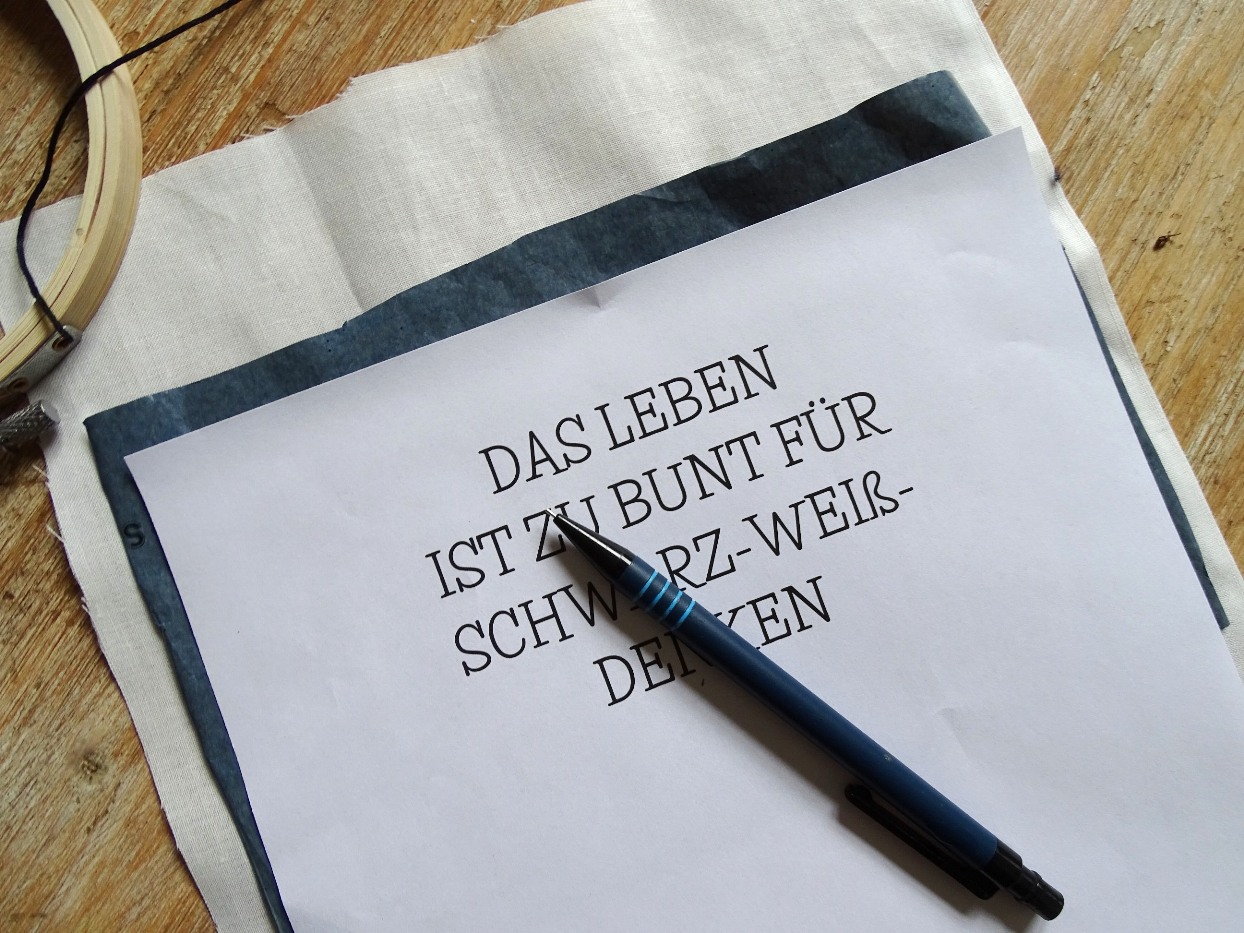 DAS LEBEN
IST ZU BUNT FÜR
SCHWARZ-WEIß-
DENKEN
S